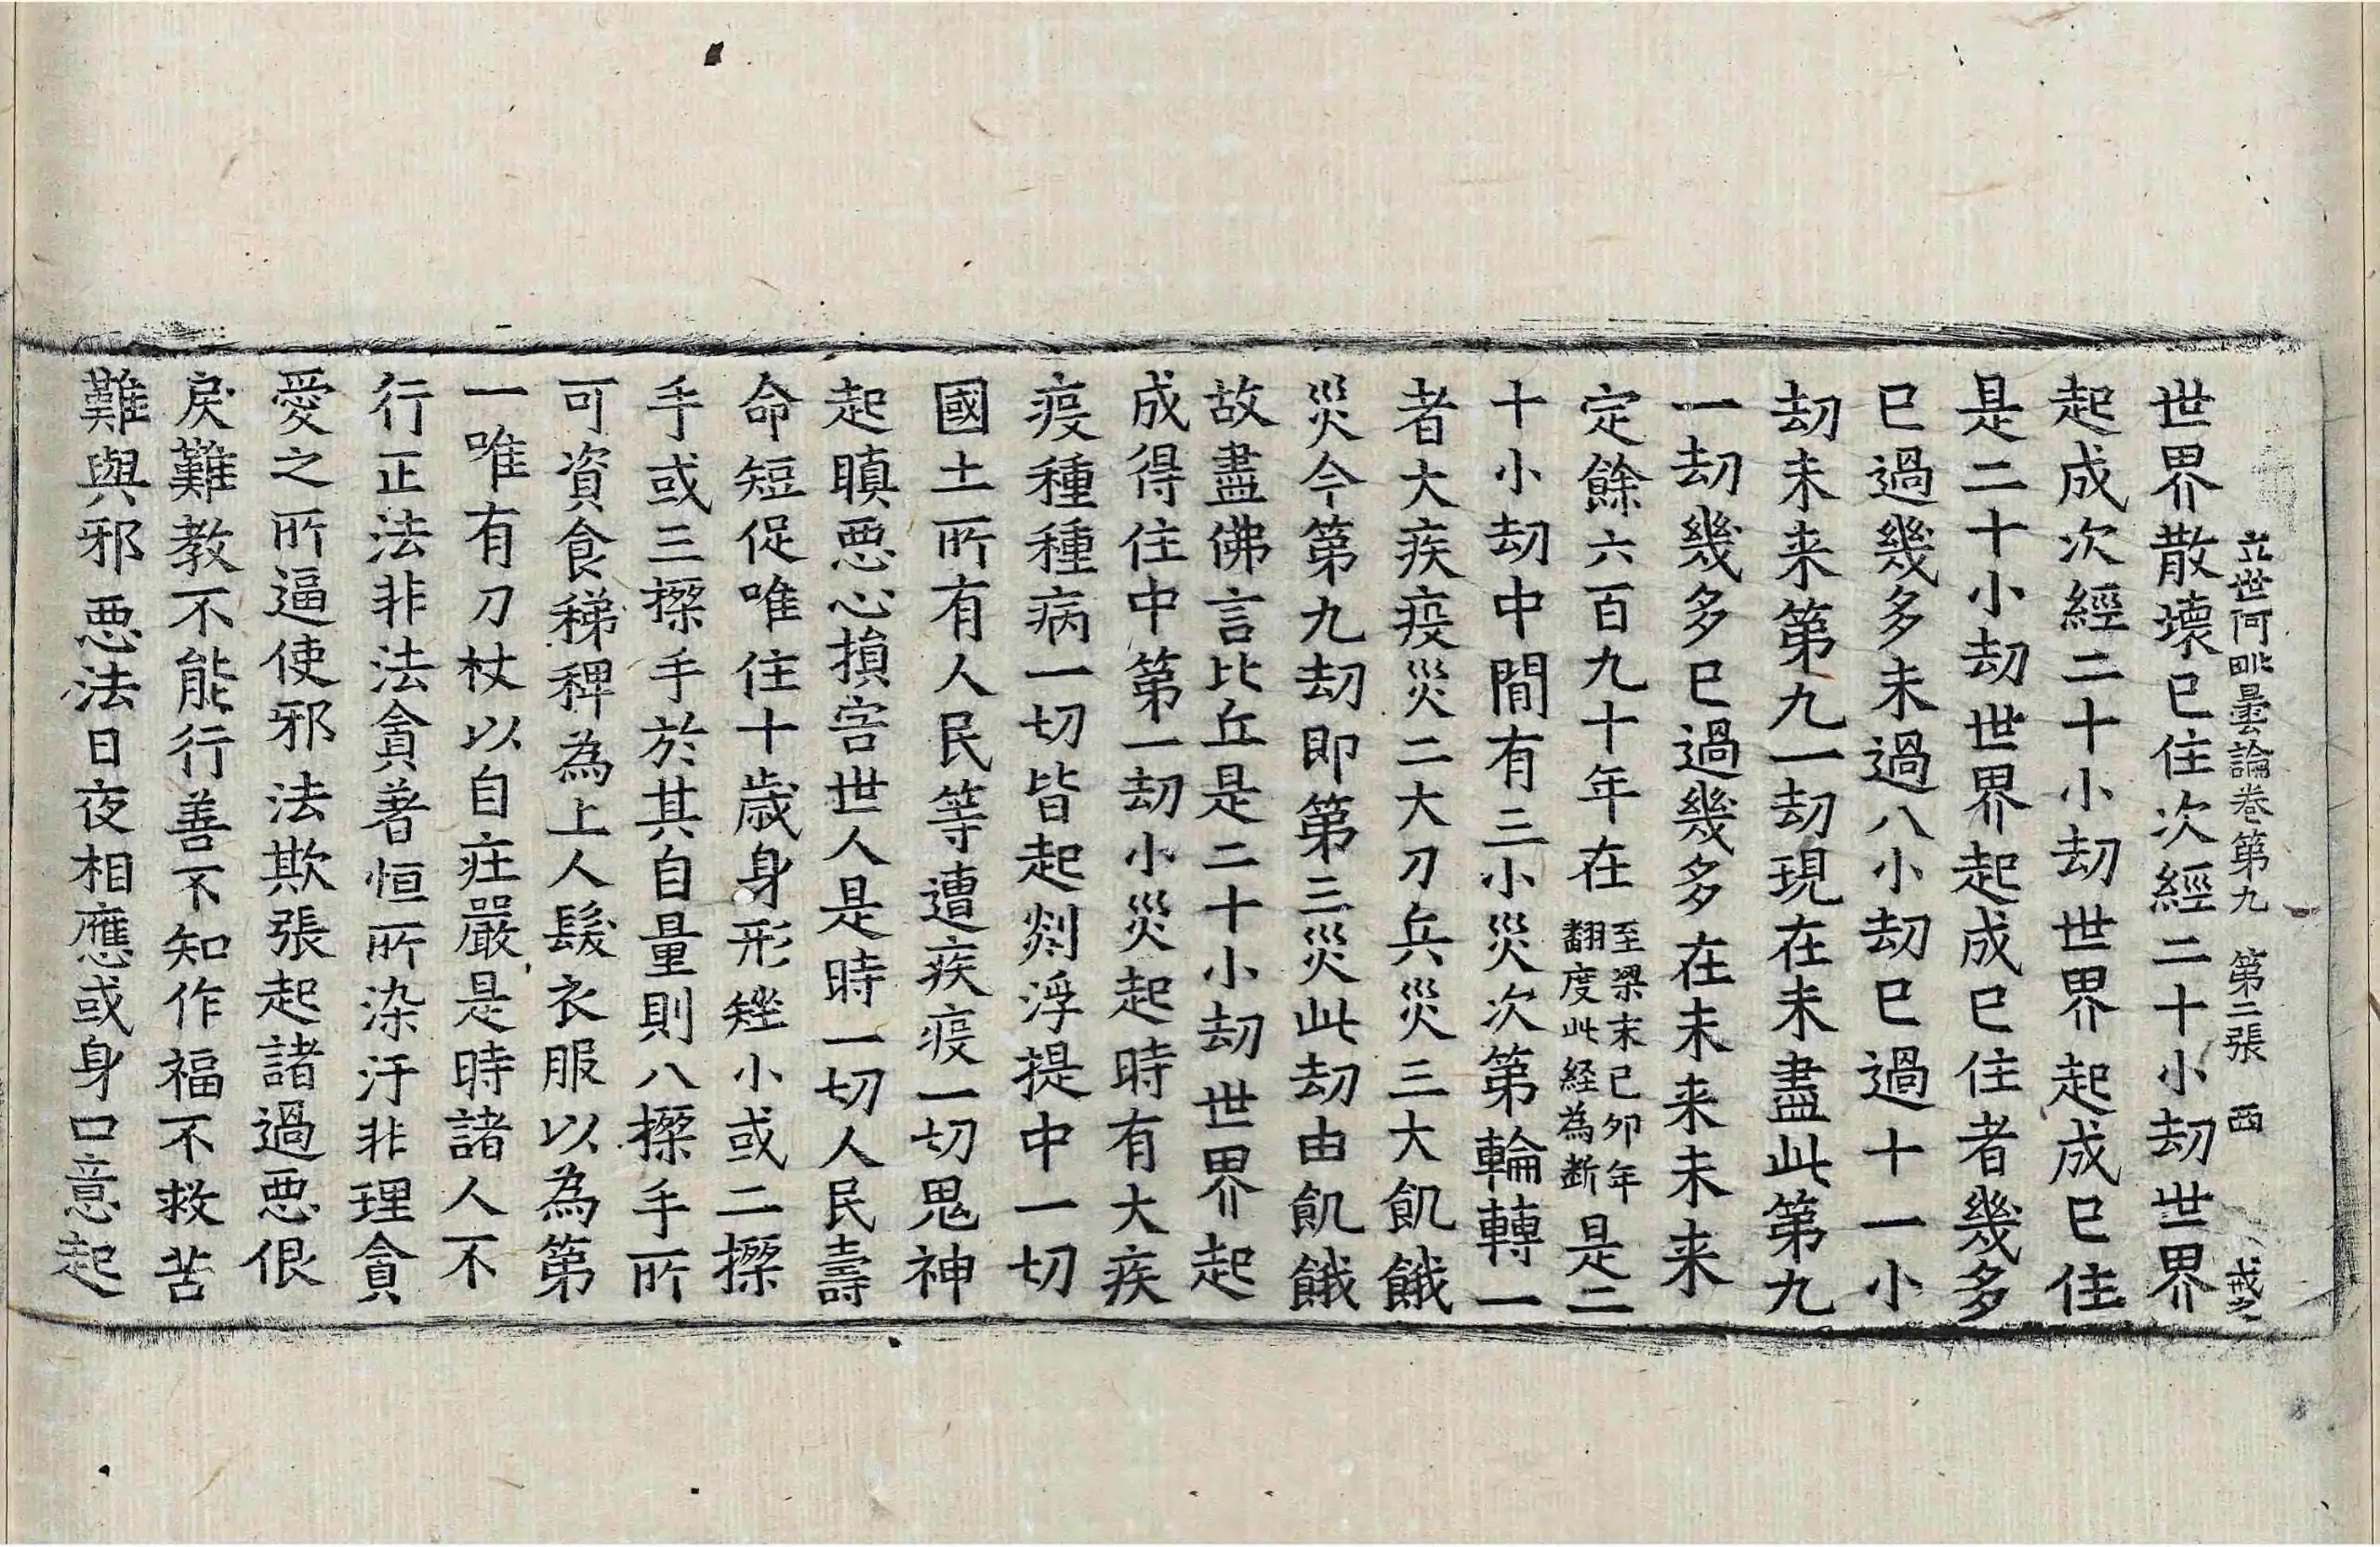 立世阿毗曇論卷第九 第二張 西 戒之
世界散壞已住次經二十小劫世界
起成次經二十小劫世界起成已住
是二十小劫世界起成已住者幾多
已過幾多未過八小劫已過十一小
劫未来第九一劫現在未盡此第九
一劫幾多已過幾多在未来未来
定餘六百九十年在至梁末己夘年翻度此経為斷是二
十小劫中間有三小災次第輪轉一
者大疾疫災二大刀兵災三大飢餓
災今第九劫即第三災此劫由飢餓
故盡佛言比丘是二十小劫世界起
成得住中第一劫小災起時有大疾
疫種種病一切皆起剡浮提中一切
國土所有人民等遭疾疫一切鬼神
起瞋惡心損害世人是時一切人民壽
命短促唯住十歲身形矬小或二搩
手或三搩手於其自量則八搩手所
可資食稊稗為上人髮衣服以為第
一唯有刀杖以自庄嚴是時諸人不
行正法非法貪著恒所染汙非理貪
愛之所逼使邪法欺張起諸過惡佷
戾難教不能行善不知作福不救苦
難與邪惡法日夜相應或身口意起